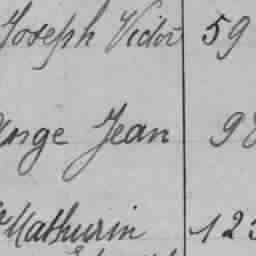 Joseph Victor 59
Ange Jean 98
Mathurin 123